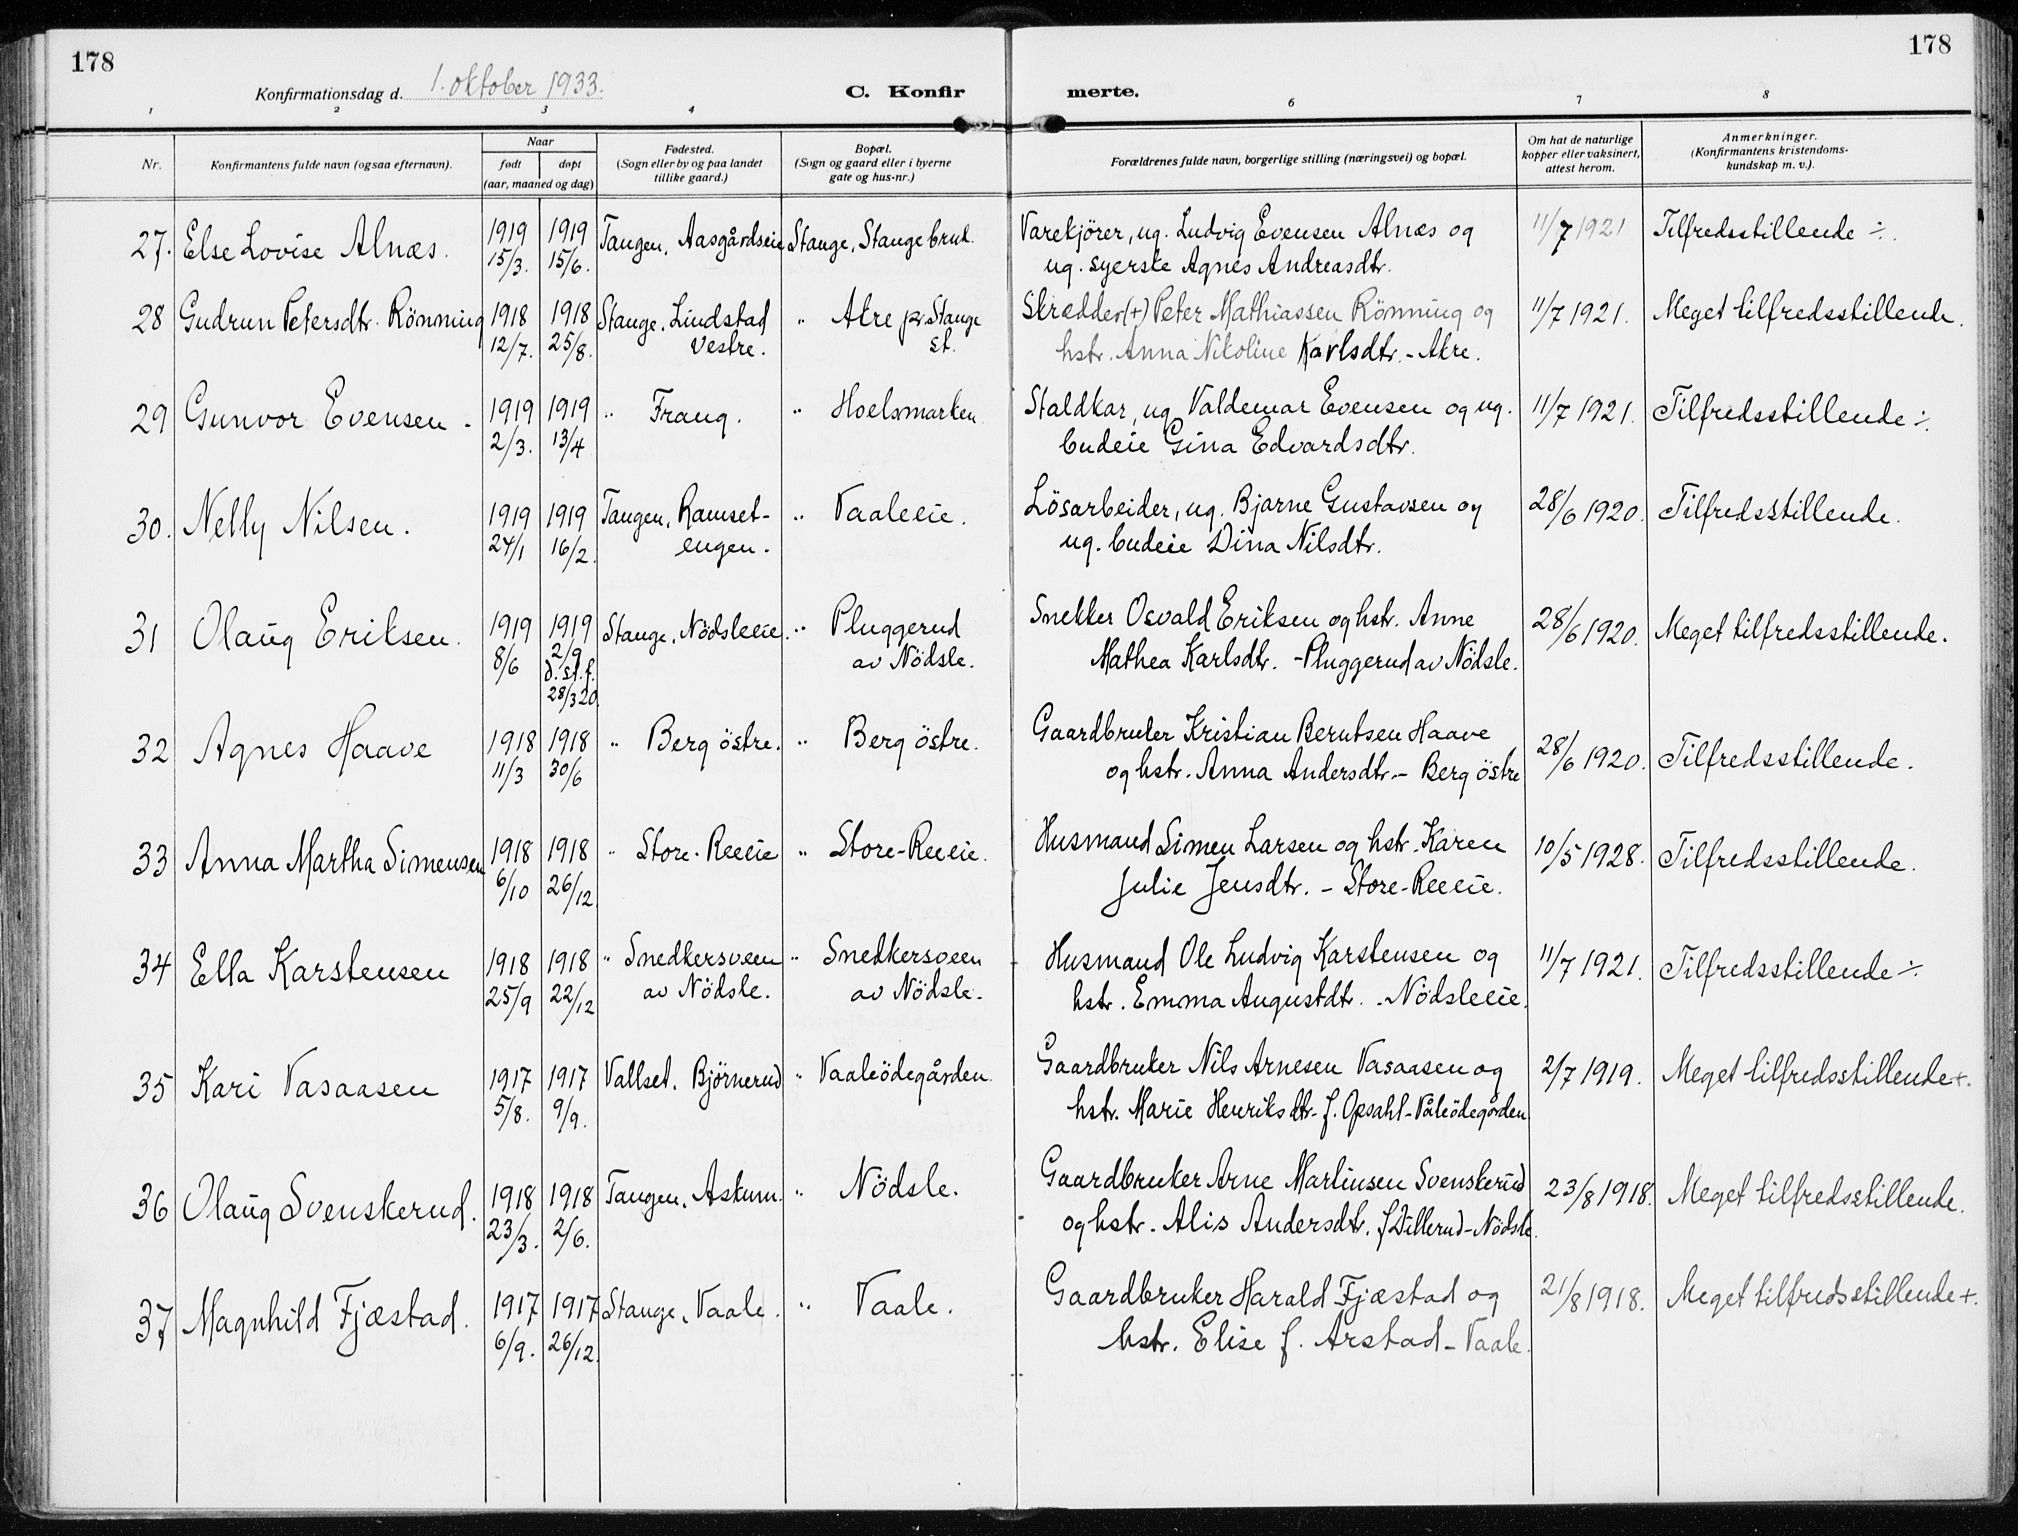 178
178
Konfirmationsdag d. 1. oktober 1933.
C. Konfir
merte.
1 2 3 4 6 7 8
Nr.
Konfirmantens fulde navn (ogsaa efternavn).
Naar
født
døpt
(aar, maaned og dag)
Fødested.
(Sogn eller by og paa landet
tillike gaard.)
Bopæl.
(Sogn og gaard eller i byerne
gate og hus-nr.)
Forældrenes fulde navn, borgerlige stilling (næringsvei) og bopæl.
Om hat de naturlige
kopper eller vaksinert,
attest herom.
Anmerkninger.
(Konfirmantens kristendoms-
kundskap m. v.).
27. Else Lovise Alnæs. 1919 1919 Tangen, Aasgårdseie Stange, Stangebruk. Varekjörer, ug. Ludvig Evensen Alnæs og 11/7 1921 Tilfredsstillende ÷.
15/3. 15/6. ug. syerske Agnes Andreasdtr.
28 Gudrun Petersdtr. Rönning 1918 1918 Stange, Lindstad " Akre pr. Stange Skrædder(+) Peter Mathiassen Rönning og 11/7 1921. Meget tilfredsstillende.
12/7. 25/8. Vestre. st. hstr. Anna Nikoline Karlsdtr. - Akre.
29 Gunvor Evensen. 1919 1919 " Frang. " Hoelsmarken. Staldkar, ug. Valdemar Evensen og ug. 11/7 1921. Tilfredsstillende ÷.
2/3. 13/4 budeie Gina Edvardsdtr.
30. Nelly Nilsen. 1919 1919 Tangen, Ramset- " Vaaleeie. Lösarbeider, ug. Bjarne Gustavsen og 28/6 1920. Tilfredsstillende.
24/1 16/2. engen. ug. budeie Dina Nilsdtr.
31 Olaug Eriksen. 1919 1919 Stange, Nödsleeie. " Pluggerud Snekker Osvald Eriksen og hstr. Anne 28/6 1920. Meget tilfredsstillende.
8/6 2/9 av Nödsle. Mathea Karlsdtr. - Pluggerud av Nödsle.
d. st. f.
28/3 20.
32 Agnes Haave 1918 1918 " Berg östre. " Berg östre. Gaardbruker Kristian Berntsen Haave 28/6 1920. Tilfredsstillende.
11/3 30/6 og hstr. Anna Andersdtr. - Berg östre
33 Anna Martha Simensen 1918 1918 " Store-Reeeie " Store-Reeeie. Husmand Simen Larsen og hstr. Karen 10/5 1928. Tilfredsstillende.
6/10 26/12. Julie Jensdtr. - Store-Reeeie.
34 Ella Karstensen 1918 1918 " Snedkersveen " Snedkersveen Husmand Ole Ludvig Karstensen og 11/7 1921. Tilfredsstillende ÷.
25/9 22/12 av Nödsle. av Nödsle. hstr. Emma Augustdtr. - Nödsleeie.
35 Kari Vasaasen 1917 1917 Vallset. Björnerud " Vaaleödegården. Gaardbruker Nils Arnesen Vasaasen og 2/7 1919. Meget tilfredsstillende+.
5/8. 9/9. hstr. Marie Henriksdtr. f. Opsahl - Våleödegården
36 Olaug Svenskerud. 1918 1918 Tangen, Askum. " Nödsle. Gaardbruker Arne Martinsen Svenskerud 23/8 1918. Meget tilfredsstillende.
23/3. 2/6. og hstr. Alis Andersdtr. f. Dillerud - Nödsle.
37 Magnhild Fjæstad. 1917 1917 Stange, Vaale. " Vaale. Gaardbruker Harald Fjæstad og 21/8 1918. Meget tilfredsstillende+.
6/9. 26/12. hstr. Elise f. Arstad - Vaale.